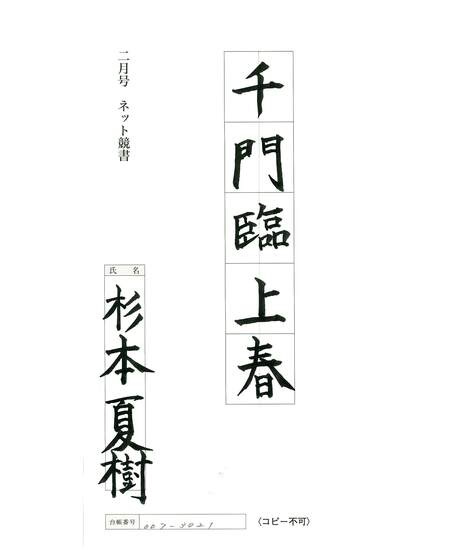 千門臨上春
二月号　ネット競書
氏名
杉本夏樹
台帳番号 007-5021
〈コピー不可〉